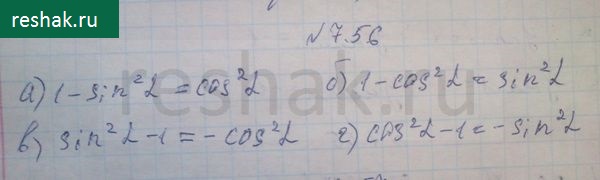 reshak.ru
№7.56
а) 1-sin²α = cos²α б) 1-cos²α = sin²α
в) sin²α-1 = -cos²α г) cos²α-1 = -sin²α
reshak.ru